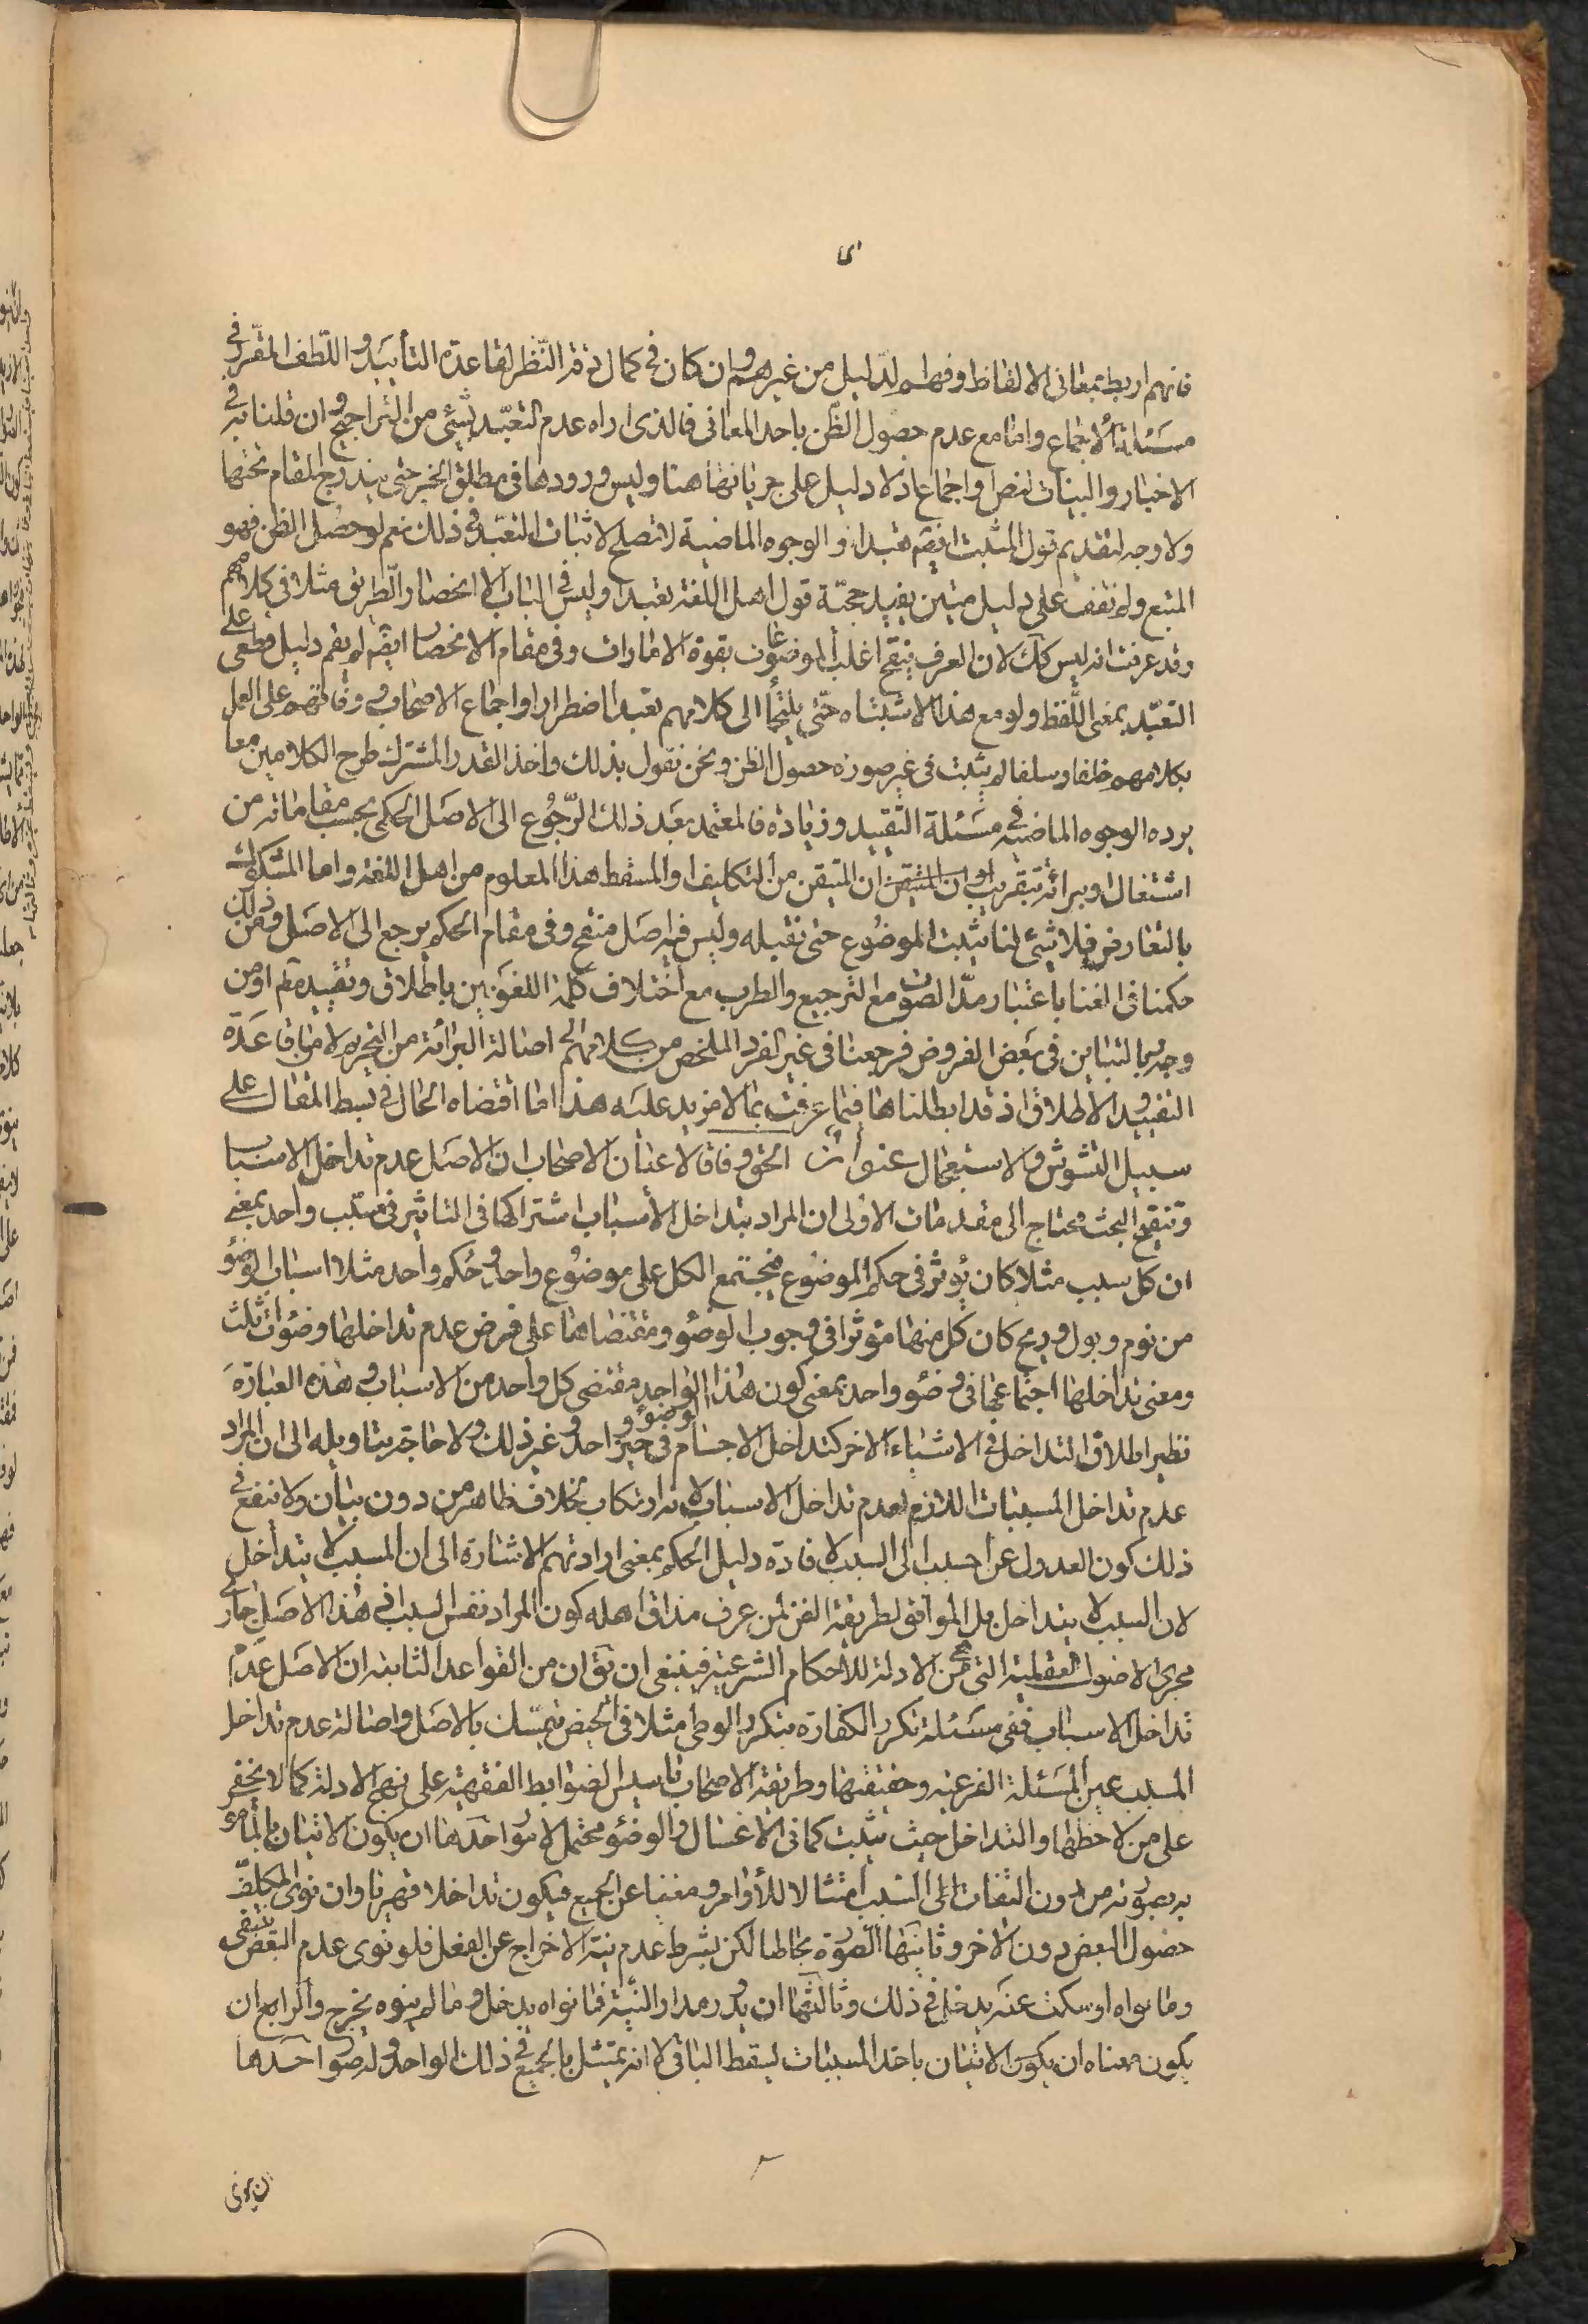 فانهم اربط بمعانى الالفاظ وافهم لدليل من غيرهم وان كان فى كمال دقة النظر لقاعدة التأييد واللطف المقرر فى
مسئلة الاجماع واما مع عدم حصول الظن باحد المعانى فالذى اراه عدم التعبد بشئ من التراجيح وان قلنا به فى
الاخبار والبينات لنص او اجماع اذ لا دليل على جريانها هنا وليس ورودها فى مطلق الخبر حتى يندرج المقام تحتها
ولا وجه لتقديم قول المثبت ايضا تعبدا والوجوه الماضية لا تصلح لاثبات التعبد فى ذلك نعم لو حصل الظن فهو
المتبع ولم نقف على دليل متين يفيد حجية قول اهل اللغة تعبدا وليس فى الباب الا انحصار الطريق مثلا فى كلامهم
وقد عرفت انه ليس كك لان العرف ينقح اغلب الموضوعات بقوة الامارات وفى مقام الانحصار ايضا لم يقم دليل قطعى على
التعبد بمعنى اللفظ ولو مع هذا الاشتباه حتى يلتجأ الى كلامهم تعبدا اضطرارا واجماع الاصحاب ووفاقهم على العمل
بكلامهم خلفا وسلفا لم يثبت فى غير صورة حصول الظن ونحن نقول بذلك واخذ القدر المشترك طرح الكلامين معا
يرده الوجوه الماضية فى مسئلة التقييد وزيادة فالمعتمد بعد ذلك الرجوع الى الاصل الحكمى بحسب مقاماته من
اشتغال او برائة بتقريب ان المتيقن من التكليف او المسقط هذا المعلوم من اهل اللغة واما المشكوك
بالتعارض فلا شئ لنا يثبت الموضوع حتى نقبله وليس فيه اصل منقح وفى مقام الحكم يرجع الى الاصل ومن ذلك
حكمنا فى الغنا باعتبار مد الصوت مع الترجيع والطرب مع اختلاف كلمة اللغويين باطلاق وتقييد او من
وجه بالتباين فى بعض الفروض فرجعنا فى غير الفرد الملخص من كلامهم الى اصالة البرائة من التحريم لا من باب قاعدة
التقييد والاطلاق اذ قد ابطلناها فيما عرفت بما لا مزيد عليه هذا ما اقتضاه الحال فى بسط المقال على
سبيل التشوش والاستعجال عنوان الحق وفاقا لاعيان الاصحاب ان الاصل عدم تداخل الاسباب
وتنقيح البحث محتاج الى مقدمات الاولى ان المراد بتداخل الأسباب اشتراكها فى التاثير فى مسبب واحد بمعنى
ان كل سبب مثلا كان يؤثر فى حكم الموضوع فيجتمع الكل على موضوع واحد وحكم واحد مثلا اسباب الوضوء
من نوم وبول وريح كان كل منها مؤثرا فى وجوب الوضوء ومقتضاها على فرض عدم تداخلها وضوات ثلث
ومعنى تداخلها اجتماعها فى وضوء واحد بمعنى كون هذا الوضوء الواحد مقتضى كل واحد من الاسباب وهذه العبارة
نظير اطلاق التداخل فى الاشياء الاخر كتداخل الاجسام فى حيز واحد وغير ذلك ولا حاجة بتاويله الى ان المراد
عدم تداخل المسببات اللازم لعدم تداخل الاسباب لانه ارتكاب بخلاف ظاهر من دون بيان ولا ينفع فى
ذلك كون العدول عن المسبب الى السبب لافادة دليل الحكم بمعنى ارادتهم الاشارة الى ان المسبب لا يتداخل
لان السبب لا يتداخل بل الموافق لطريقة الفن لمن عرف مذاق اهله كون المراد نفس السبب اذ هذا الاصل جار
مجرى الاصول العقلية التى هى من الادلة للأحكام الشرعية فينبغى ان يق ان من القواعد الثابتة ان الاصل عدم
تداخل الاسباب ففى مسئلة تكرر الكفارة بتكرر الوطى مثلا فى الحيض يتمسك بالاصل واصالة عدم تداخل
المسبب عين المسئلة الفرعية وحقيقتها وطريقة الاصحاب تاسيس الضوابط الفقهية على نهج الادلة كما لا يخفى
على من لاحظها والتداخل حيث يثبت كما فى الاغسال والوضوء محتمل لامور احدها ان يكون الاتيان بالمأمور
به بصورته من دون التفات الى السبب امتثالا للأوامر ومغنيا عن الجميع فيكون تداخلا قهريا وان نوى المكلف
حصول البعض دون الاخر وثانيها الصورة بحالها لكن بشرط عدم نية الاخراج عن الفعل فلو نوى عدم البعض ينتفى
وما نواه او سكت عنه يدخل فى ذلك وثالثها ان يدور مدار النية فما نواه يدخل وما لم ينوه يخرج والرابع ان
يكون معناه ان يكون الاتيان باحد المسببات يسقط الباقى لا انه يمتثل بالجميع فى ذلك الواحد وله صور احدها